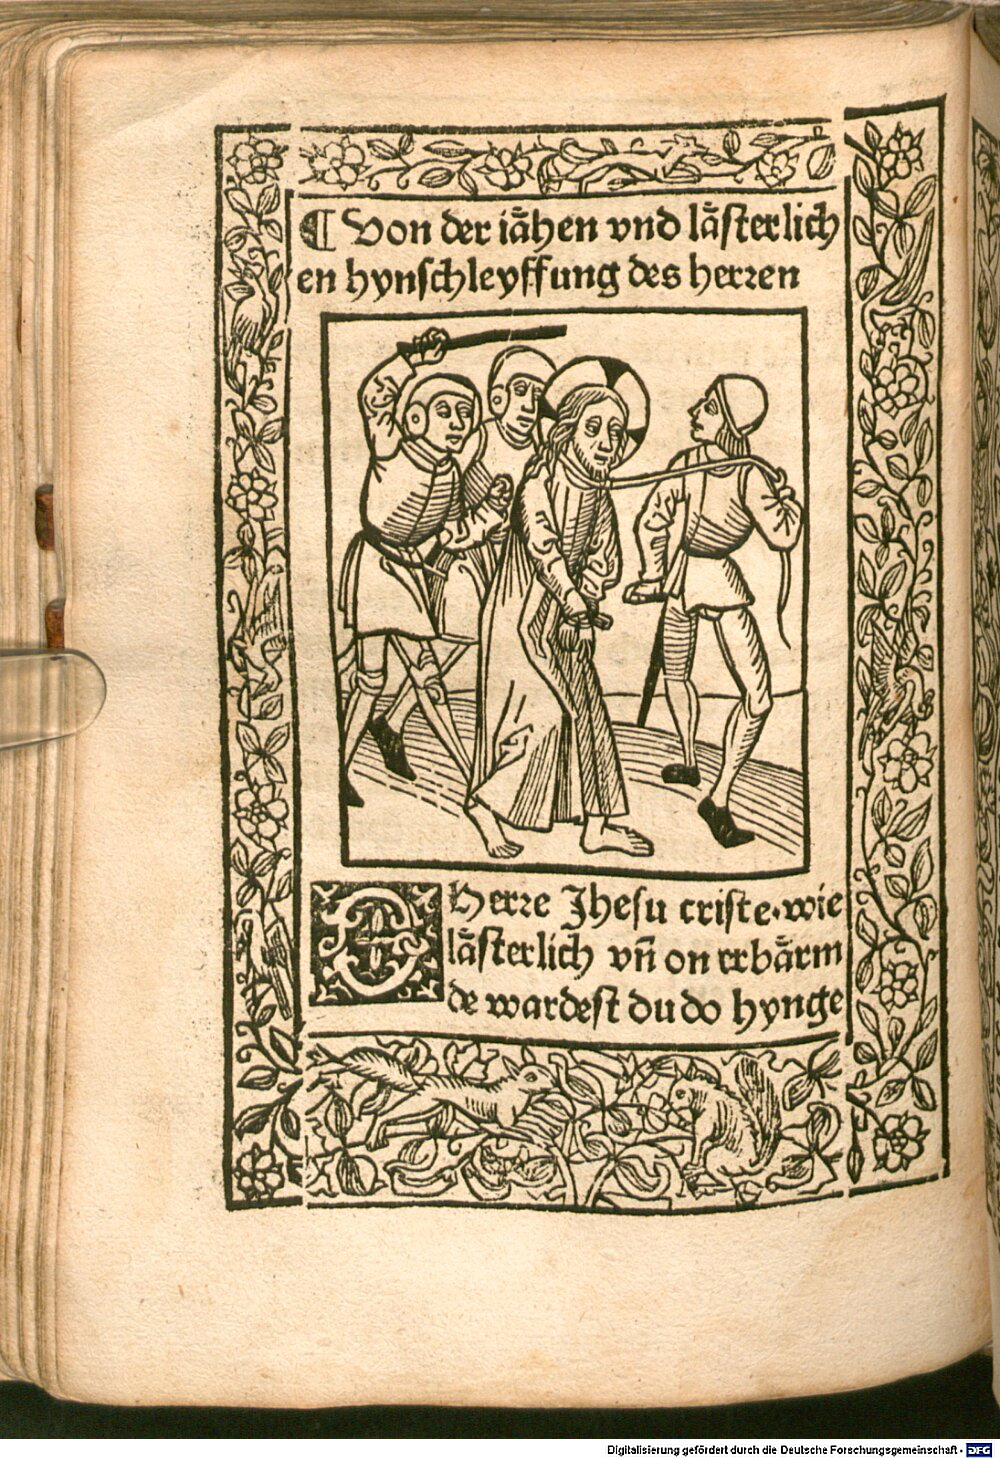 ¶ Von der iåhen vnd låſterlich
en hynſchleyffung des herꝛen
O Herꝛe Jheſu criſte·wie
låſterlich vn̄ on erbårm
de wardeſt du do hynge
Digitalisierung gefördert durch die Deutsche Forschungsgemeinschaft - DFG